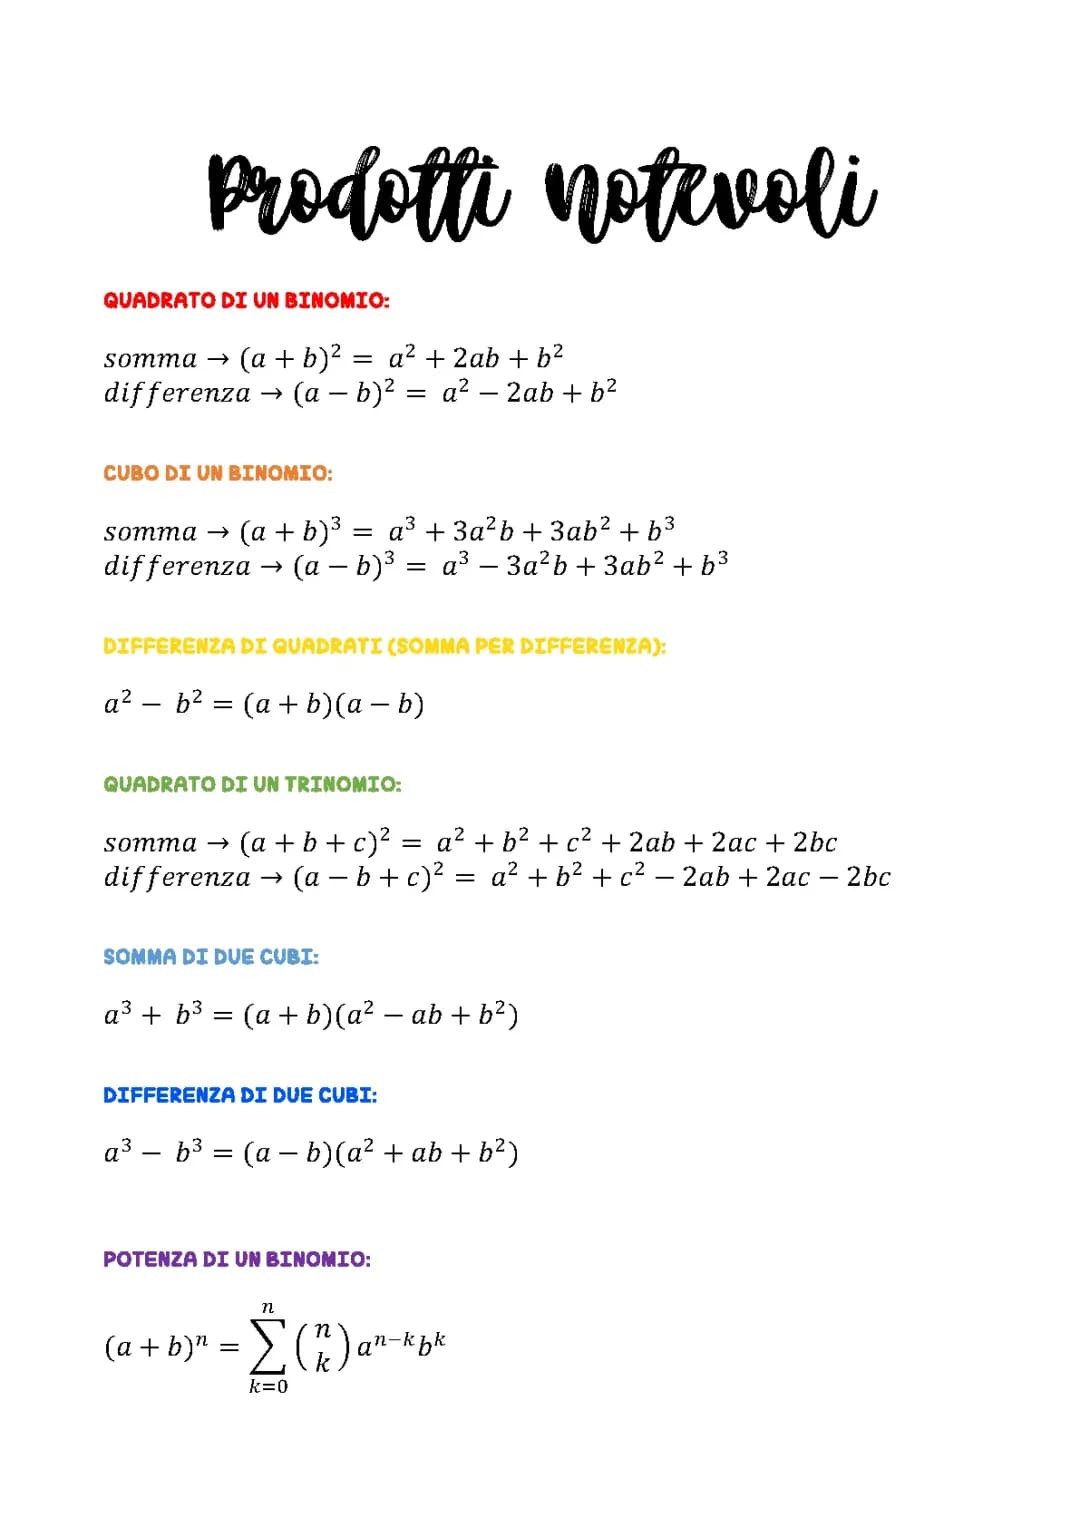 Prodotti notevoli
QUADRATO DI UN BINOMIO:
somma → (a + b)² = a² + 2ab + b²
differenza → (a − b)² = a² − 2ab + b²
CUBO DI UN BINOMIO:
somma → (a + b)³ = a³ + 3a²b + 3ab² + b³
differenza → (a − b)³ = a³ − 3a²b + 3ab² + b³
DIFFERENZA DI QUADRATI (SOMMA PER DIFFERENZA):
a² − b² = (a + b)(a − b)
QUADRATO DI UN TRINOMIO:
somma → (a + b + c)² = a² + b² + c² + 2ab + 2ac + 2bc
differenza → (a − b + c)² = a² + b² + c² − 2ab + 2ac − 2bc
SOMMA DI DUE CUBI:
a³ + b³ = (a + b)(a² − ab + b²)
DIFFERENZA DI DUE CUBI:
a³ − b³ = (a − b)(a² + ab + b²)
POTENZA DI UN BINOMIO:
(a + b)ⁿ = ∑_{k=0}^{n} (n k) aⁿ⁻ᵏbᵏ